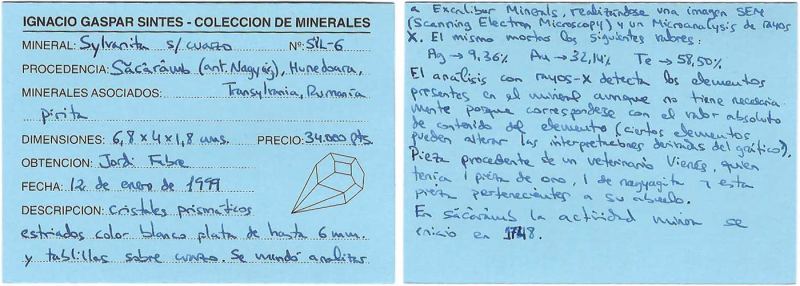 IGNACIO GASPAR SINTES - COLECCION DE MINERALES
MINERAL: Sylvanita s/ cuarzo Nº: SYL-6
PROCEDENCIA: Sâcârâmb (ant. Nagyág), Hunedoara,
MINERALES ASOCIADOS: Transylvania, Rumanía
pirita
DIMENSIONES: 6,8 x 4 x 1,8 cms. PRECIO: 34.000 pts.
OBTENCION: Jordi Fabre
FECHA: 12 de enero de 1999
DESCRIPCION: cristales prismáticos
estriados color blanco plata de hasta 6 mm.
y tablillas sobre cuarzo. Se mandó analizar
a Excalibur Minerals, realizándose una imagen SEM
(Scanning Electron Microscopy) y un Microanalysis de rayos
X. El mismo mostró los siguientes valores:
Ag → 9,36% Au → 32,14% Te → 58,50%
El análisis con rayos-X detecta los elementos
presentes en el mineral aunque no tiene necesaria
mente porque corresponderse con el valor absoluto
de contenido del elemento (ciertos elementos
pueden alterar las interpretaciones derivadas del gráfico).
Pieza procedente de un veterinario Vienés, quien
tenía 1 pieza de oro, 1 de nagyagita y esta
pieza pertenecientes a su abuelo.
En Sâcârâmb la actividad minera se
inició en 1748.